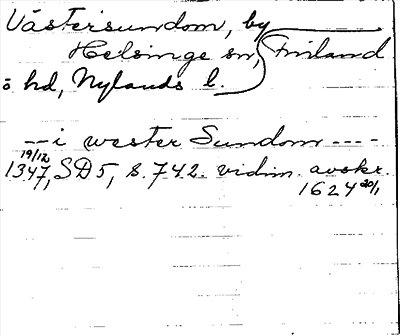 Västersundom, by
Helsinge sn, Finland
ö hd, Nylands l.
--- i wester Sundom ----
19/12
1347, SD5, s. 742. vidim. avskr.
1624 20/1